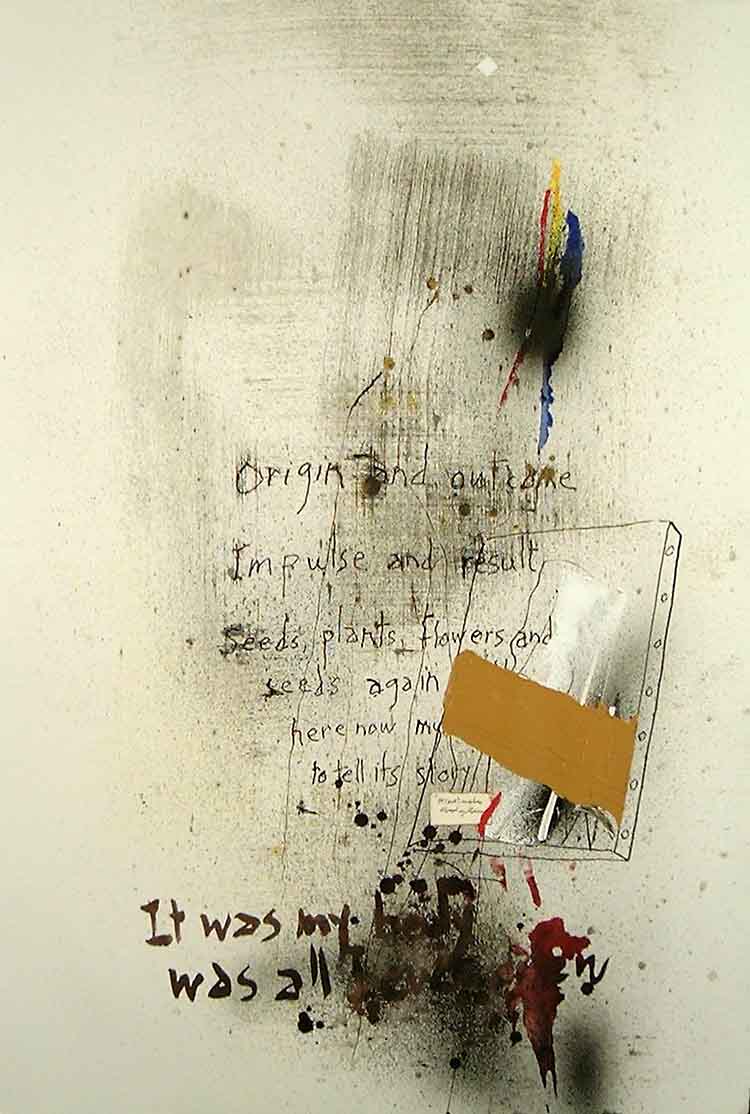 Origin and outcome
Impulse and result
Seeds, plants, flowers and
seeds again
here now my
to tell its story
It was my body
was all